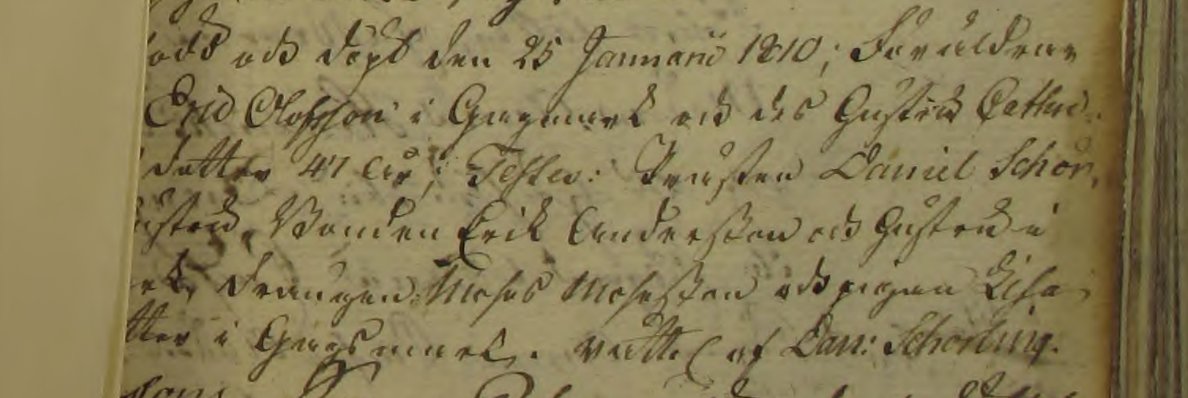 och döpt den 25 Januarii 1810; Föräldrar
Eric Olofsson i Gagsmark och des Hustru Cathri-
dotter 41 år; Testes: Prosten Daniel Schor-
Hustru, Bonden Erik Andersson och Hustru i
Drängen Moses Mosesson och pigan Lisa
tter i Gagsmark. af Dan: Schorling.